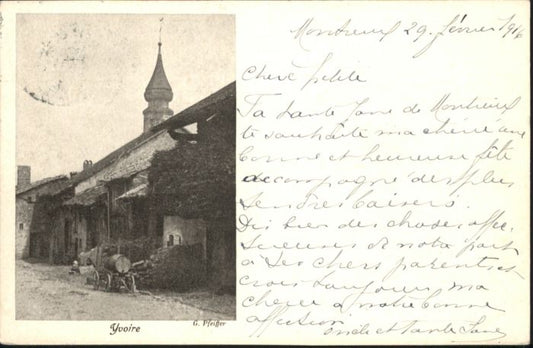 Montreux 29 février 1916
Chère petite
Ta tante Jane de Montreux
te souhaite ma chérie une
bonne et heureuse fête
accompagné des plus
tendres baisers.
Dis bien des choses affec-
tueuses de notre part
à tes chers parents et
crois toujours ma
chérie à notre bonne
affection
oncle et tante Jane
Yvoire
G. Pfeiffer